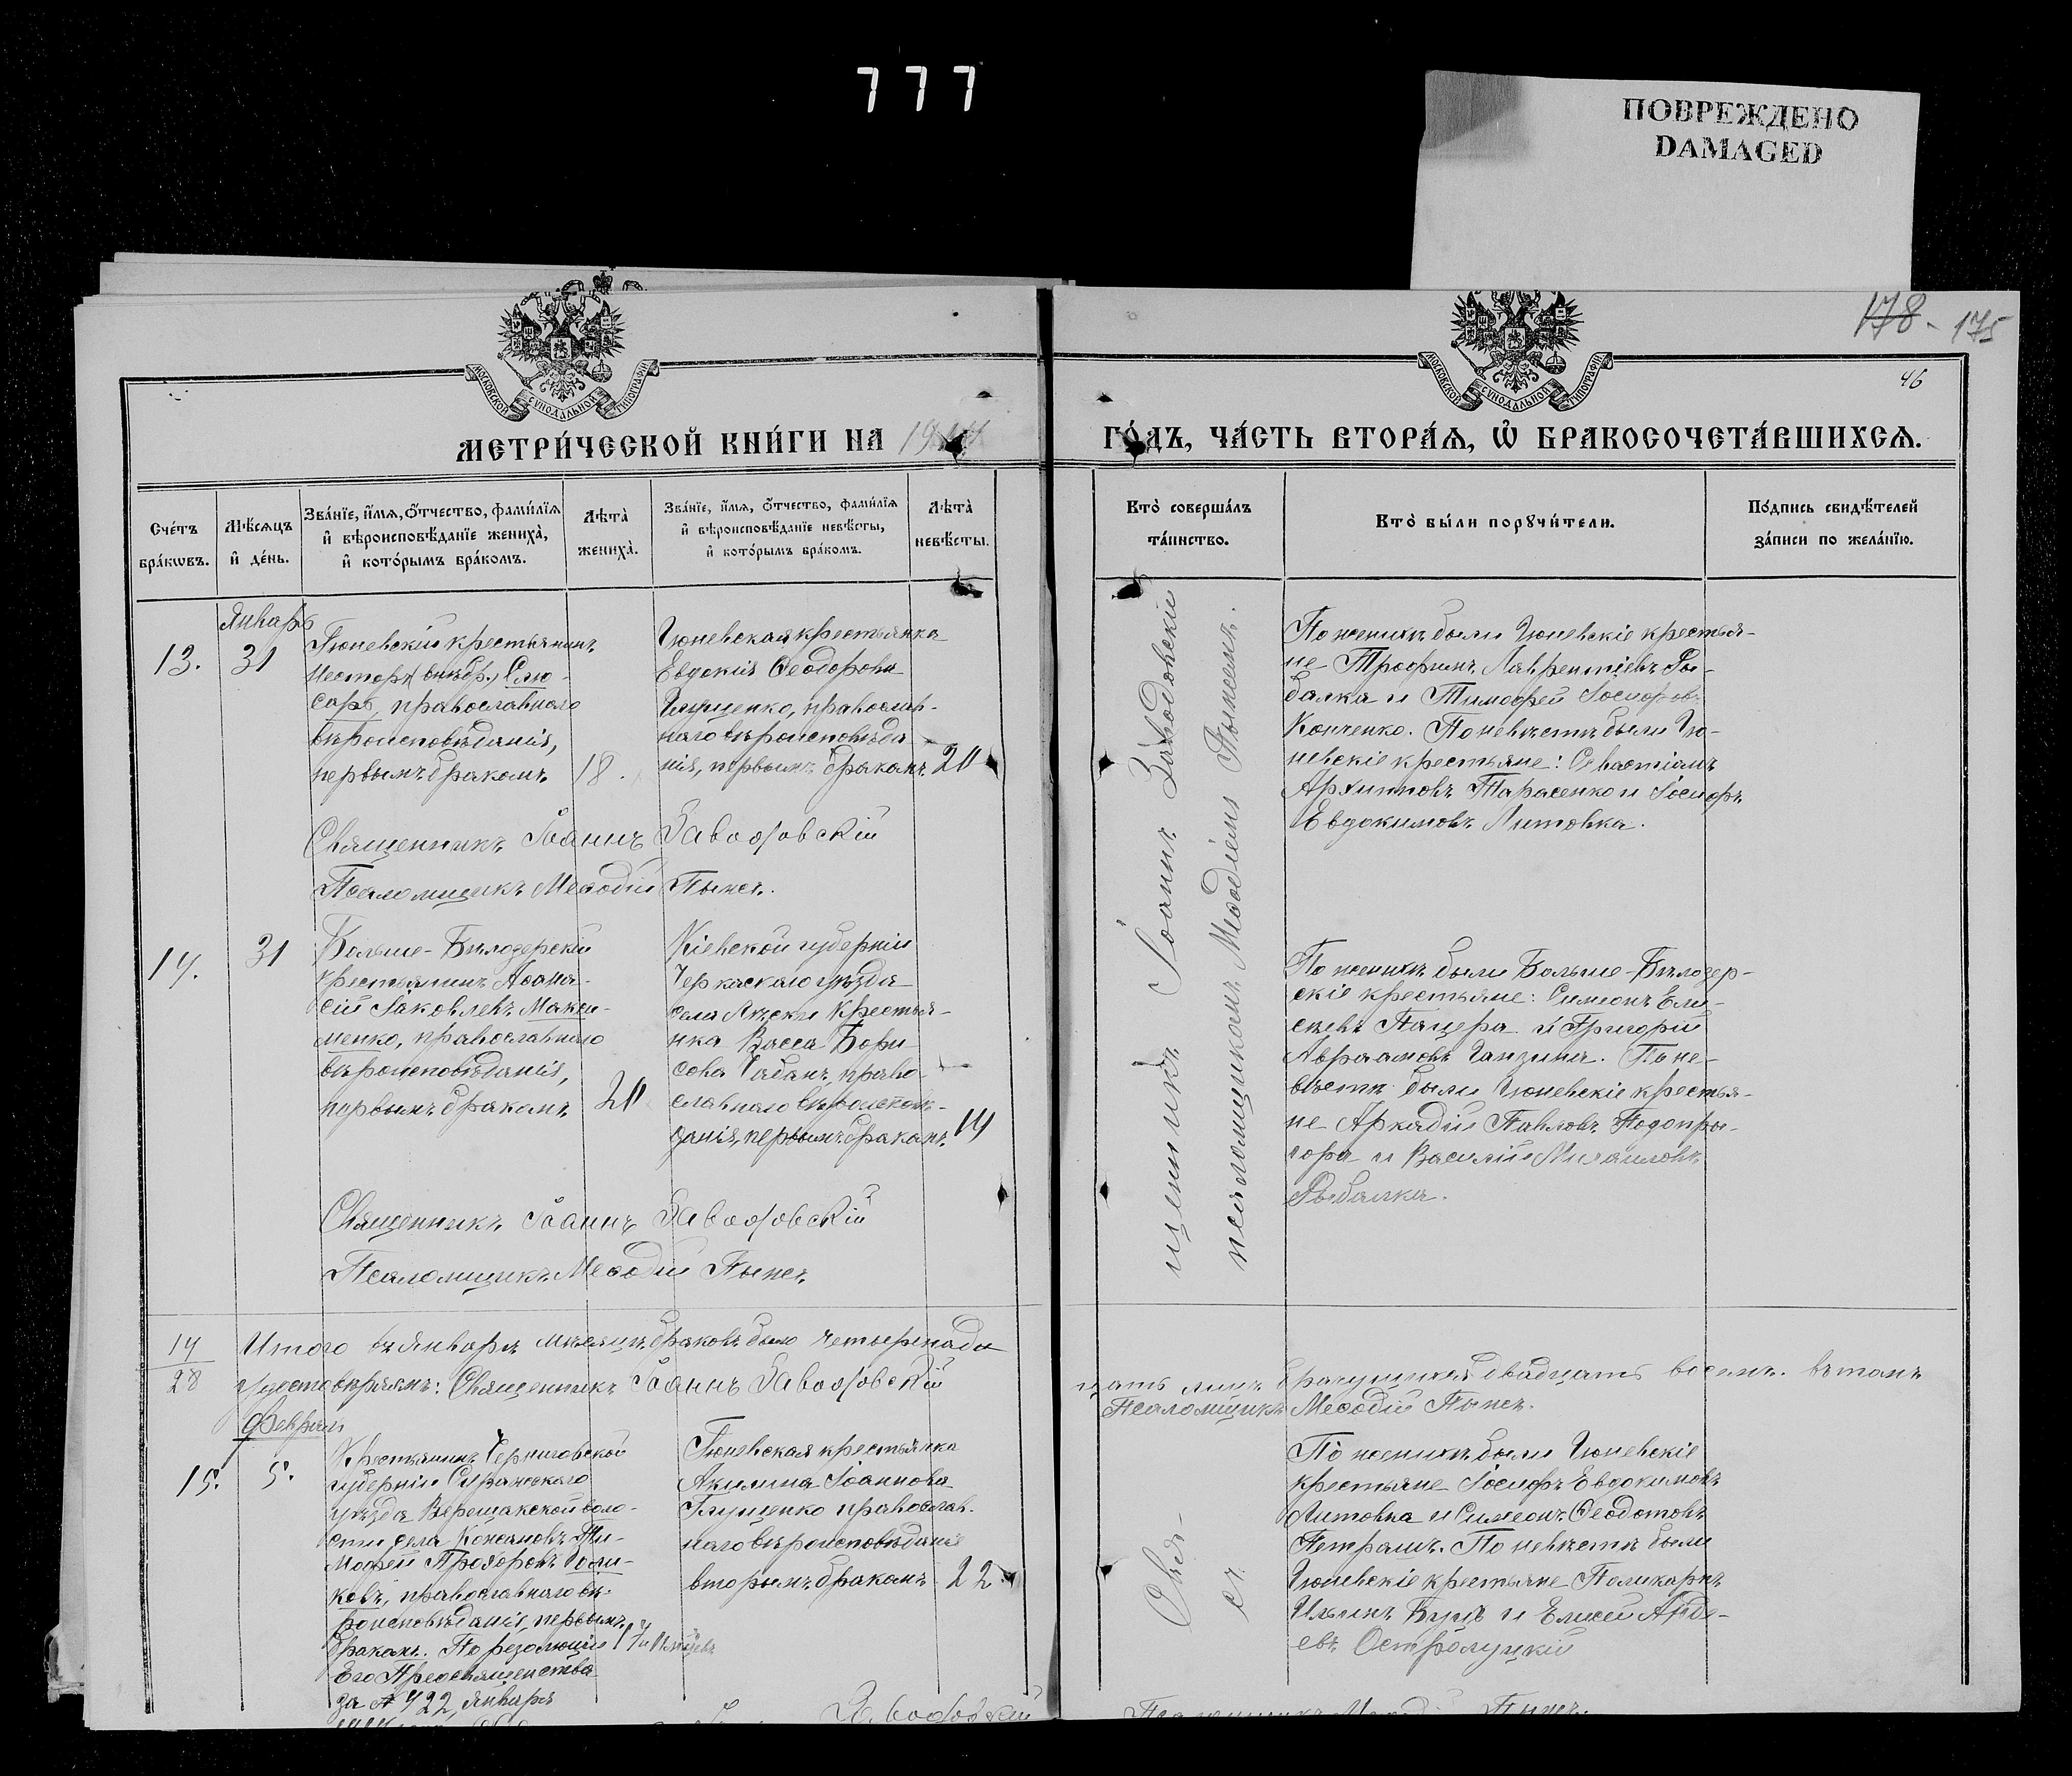 777
ПОВРЕЖДЕНО
DAMAGED
178 - 175
46
МОСКОВСКОЙ СѴНОДАЛЬНОЙ ТИПОГРАФІИ
МОСКОВСКОЙ СѴНОДАЛЬНОЙ ТИПОГРАФІИ
МЕТРИ́ЧЕСКОЙ КНИ́ГИ НА 19
ГО́ДЪ, ЧА́СТЬ ВТОРА́Я, Ѡ҆ БРАКОСОЧЕТА́ВШИХСЯ.
Сче́тъ
бра́кωвъ.
Мѣ́сяцъ
и҆ де́нь.
Зва́нїе, и҆́мя, ѻ҆́тчество, фами́лїя
и҆ вѣроисповѣ́данїе жениха̀,
и҆ кото́рымъ бра́комъ.
Лѣта̀
жениха̀.
Зва́нїе, и҆́мя, ѻ҆́тчество, фами́лїя
и҆ вѣроисповѣ́данїе невѣ́сты,
и҆ кото́рымъ бра́комъ.
Лѣта̀
невѣ́сты.
Кто̀ соверша́лъ
та́инство.
Кто̀ бы́ли порꙋчи́тели.
По́дпись свидѣ́телей
за́писи по жела́нїю.
Январь
13.
31
Гюневскій крестьянинъ
Несторъ Слю-
саръ, православнаго
вѣроисповѣданія,
первымъ бракомъ
18.
Гюневская крестьянка
Евдокія Ѳеодорова
православ-
наго вѣроисповѣда
нія, первымъ бракомъ
20
По женихѣ были Гюневскіе крестья-
не Трофимъ Лаврентіевъ Ры-
балка и Тимофей Іосифовъ
Коптенко. По невѣстѣ были Гю-
невскіе крестьяне: Севастіанъ
Архиповъ Тарасенко и Іосифъ
Евдокимовъ Литовка.
Священникъ Іоаннъ Заводовскій
Псаломщикъ Меѳодій Пынех.
14.
31
Больше-Бѣлозерскій
крестьянинъ Аѳана-
сій Іаковлевъ Макси-
менко, православнаго
вѣроисповѣданія,
первымъ бракомъ
20
Кіевской губерніи
Черкаскаго уѣзда
села Лѣски крестья-
нка Васса Бори
сова Чабанъ, право
славнаго вѣроисповѣ-
данія, первымъ бракомъ
19
По женихѣ были Больше-Бѣлозер-
скіе крестьяне: Симеонъ Ели-
сѣевъ Пацера и Григорій
Авраамовъ Ганзина. По не-
вѣстѣ были Гюневскіе крестья-
не Аркадій Павловъ Подопри-
гора и Василій Михаиловъ
Рыбалка.
Священникъ Іоаннъ Заводовскій
Псаломщикъ Меѳодій Пынех.
14
28
Итого въ Январѣ мѣсяцѣ браковъ было четырнад
цать лицъ брачущихся двадцать восемь. въ томъ
удостовѣряемъ: Священникъ Іоаннъ Заводовскій
Псаломщикъ Меѳодій Пынех.
Февраль
15.
5.
Крестьянинъ Черниговской
губерніи Суражскаго
уѣзда Верещакской воло-
сти села Кожановъ Ти-
мофей Прохоровъ Голи-
ковъ, православнаго вѣ-
роисповѣданія, первымъ
бракомъ. По резолюціи
Его Преосвященства
за № 722, января
17
Гюневская крестьянка
Акилина Іоаннова
Глущенко православ-
наго вѣроисповѣданія
вторымъ бракомъ
22.
По женихѣ были Гюневскіе
крестьяне Іосифъ Евдокимовъ
Литовка и Симеонъ Ѳеодотовъ
Петрашъ. По невѣстѣ были
Гюневскіе крестьяне Поликарпъ
Ильинъ Буцъ и Елисей Авде-
евъ Остролуцкій
Свя-
щенникъ Іоаннъ Заводовскій
съ
псаломщикомъ Меѳодіемъ Пынехъ.
Заводовскій
Псаломщикъ Меѳодій Пынех.